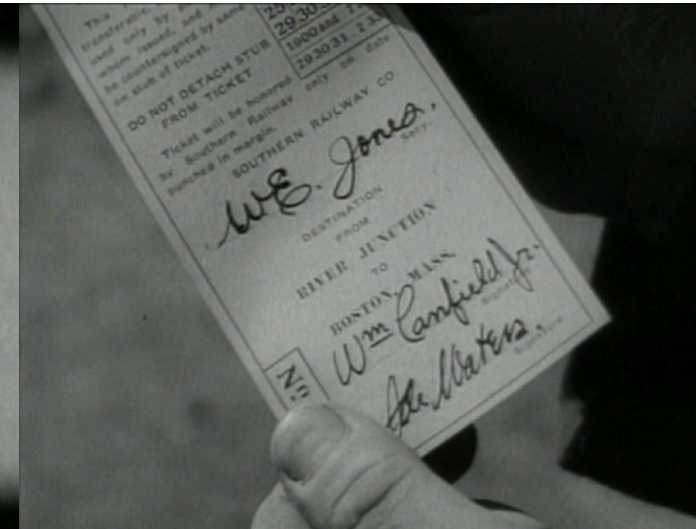 This
transferable,
used only by
whom issued, and
be countersigned by same
on stub of ticket.
DO NOT DETACH STUB
FROM TICKET
Ticket will be honored
by Southern Railway only on date
punched in margin.
25
29 30 3
1900 and
29 30 31 2 33
SOUTHERN RAILWAY CO.
W.E. Jones.
Secy.
DESTINATION
FROM
RIVER JUNCTION
TO
BOSTON, MASS.
Wm Canfield Jr.
Signature
Waters.
Signature
No.